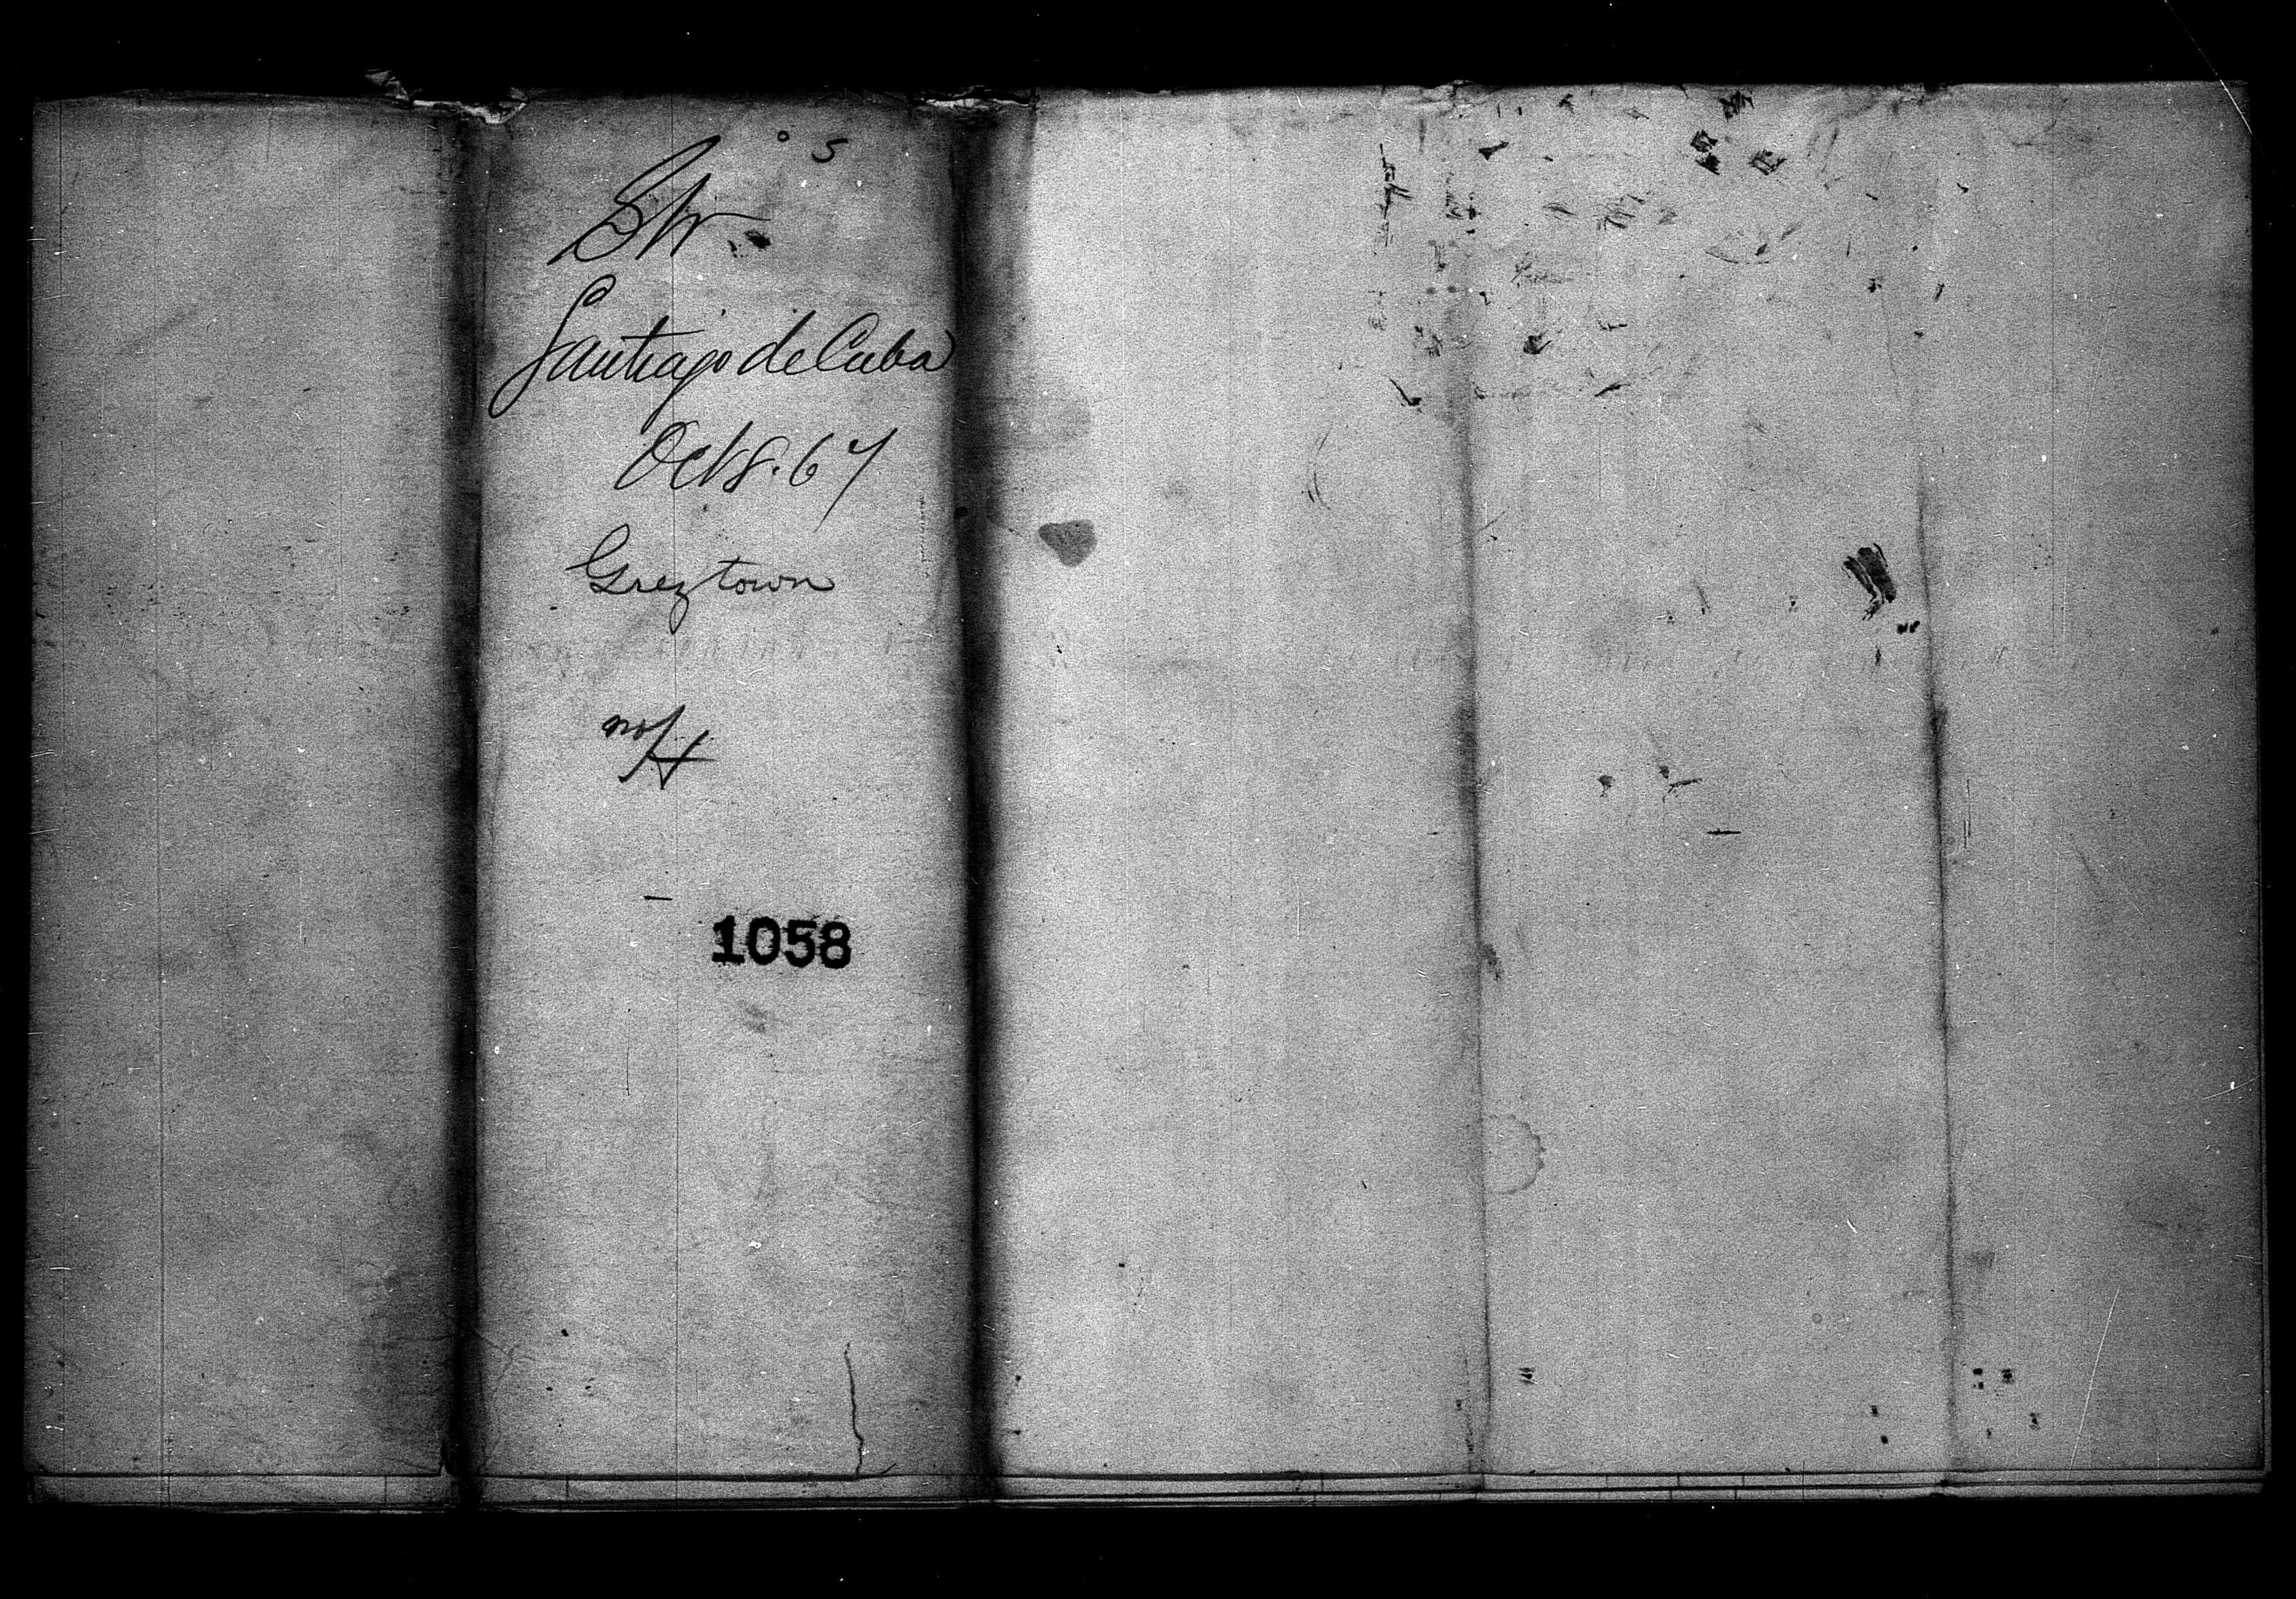 S
Santiago de Cuba
Oct 8. 67
Greytown
1058